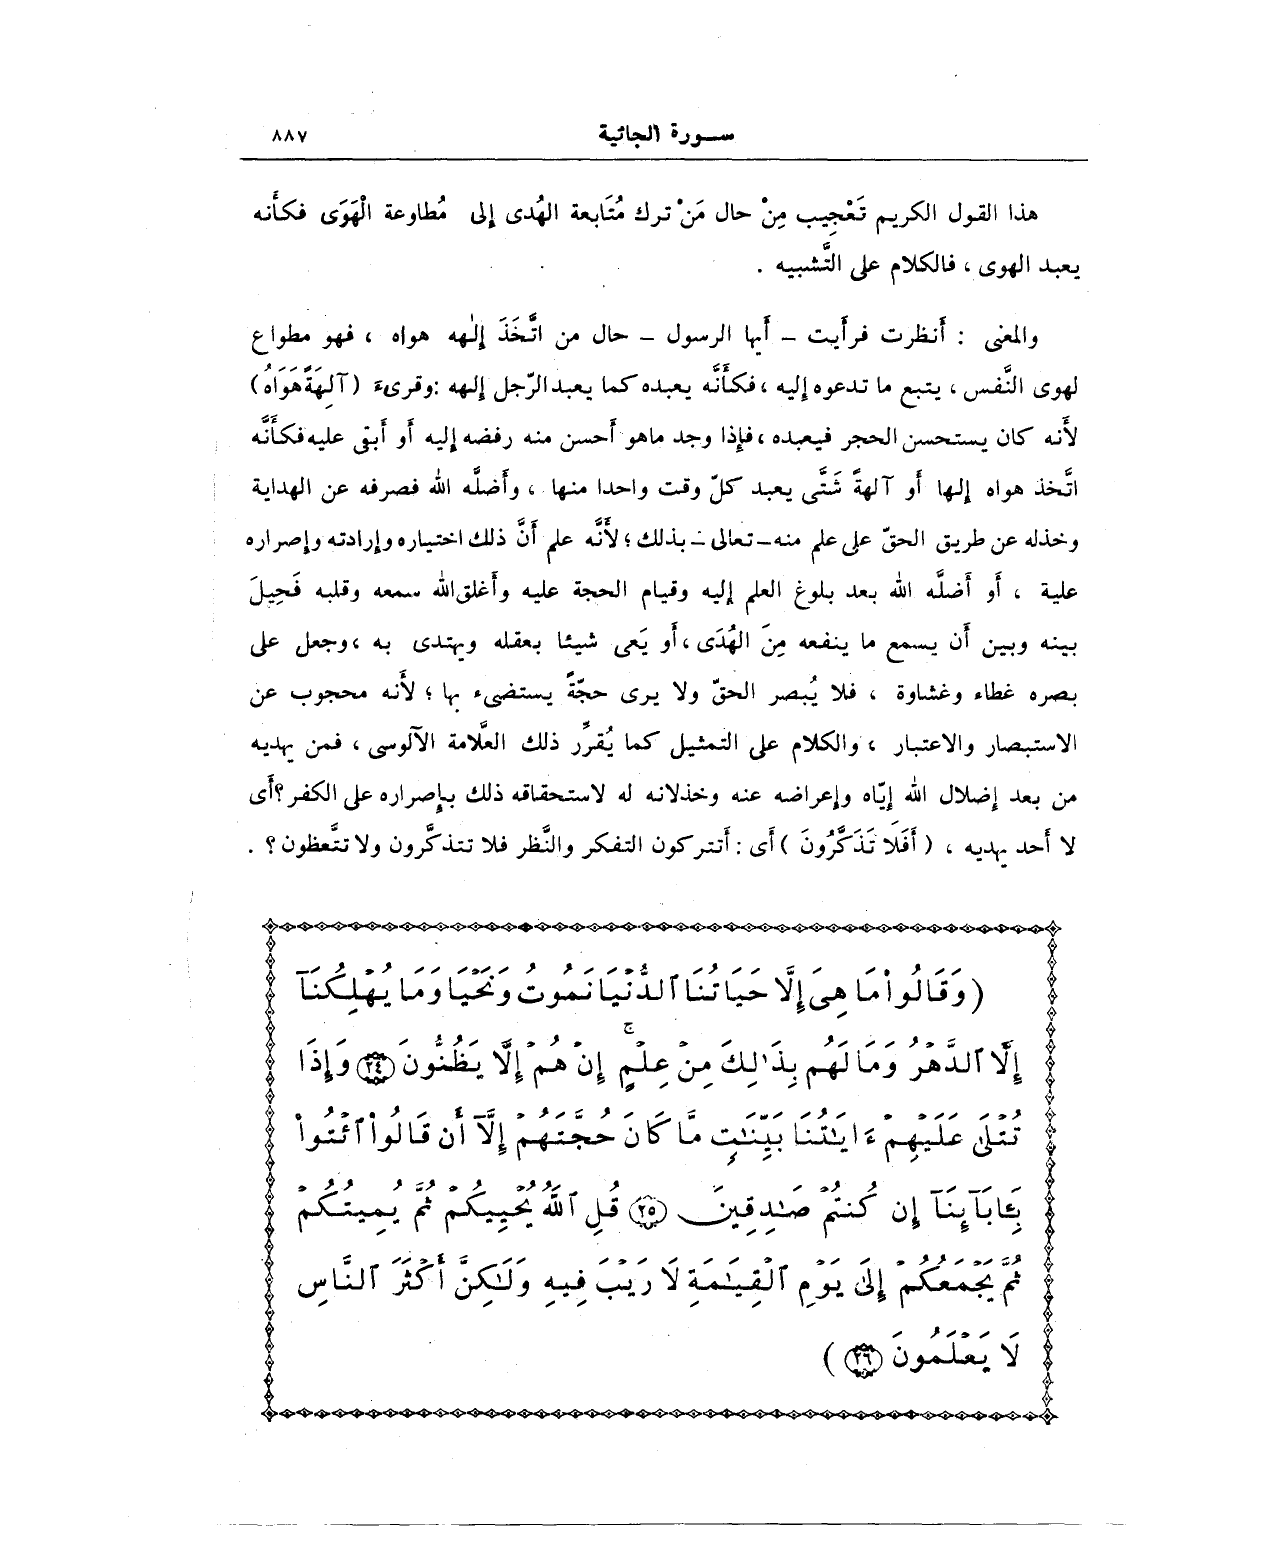 سورة الجاثية ٨٨٧
هذا القول الكريم تَعْجِيب مِنْ حال مَنْ ترك مُتَابعة الهُدى إلى مُطاوعة الْهَوَى فكأَنه
يعبد الهوى ، فالكلام على التَّشبيه .
والمعنى : أَنظرت فرأَيت - أَيها الرسول - حال من اتَّخَذَ إلٰهه هواه ، فهو مطواع
لهوى النَّفس ، يتبع ما تدعوه إليه ، فكأَنَّه يعبده كما يعبد الرّجل إلهه : وقرىءَ ( آلِهَةً هَوَاهُ )
لأَنه كان يستحسن الحجر فيعبده ، فإذا وجد ماهو أَحسن منه رفضه إليه أَو أَبقى عليه فكأَنَّه
اتَّخذ هواه إلها أَو آلهةً شتَّى يعبد كلّ وقت واحدا منها ، وأَضلَّه الله فصرفه عن الهداية
وخذله عن طريق الحقّ على علم منه - تعالى - بذلك ؛ لأَنَّه علم أَنَّ ذلك اختياره وإرادته وإصراره
علية ، أَو أَضلَّه الله بعد بلوغ العلم إليه وقيام الحجة عليه وأَغلق الله سمعه وقلبه فَحِيلَ
بينه وبين أَن يسمع ما ينفعه مِنَ الهُدَى ، أَو يَعى شيئا بعقله ويهتدى به ، وجعل على
بصره غطاء وغشاوة ، فلا يُبصر الحقّ ولا يرى حجّةً يستضىء بها ؛ لأَنه محجوب عن
الاستبصار والاعتبار ، والكلام على التمثيل كما يُقرِّر ذلك العلَّامة الآلوسى ، فمن يهديه
من بعد إضلال الله إيّاه وإعراضه عنه وخذلانه له لاستحقاقه ذلك بإصراره على الكفر ؟ أَى
لا أَحد يهديه ، ( أَفَلَا تَذَكَّرُونَ ) أَى : أَتتركون التفكر والنَّظر فلا تتذكَّرون ولا تتَّعظون ؟ .
( وَقَالُواْ مَا هِىَ إِلَّا حَيَاتُنَا ٱلدُّنْيَا نَمُوتُ وَنَحْيَا وَمَا يُهْلِكُنَآ
إِلَّا ٱلدَّهْرُ وَمَا لَهُم بِذَٰلِكَ مِنْ عِلْمٍ ۚ إِنْ هُمْ إِلَّا يَظُنُّونَ ﴿٢٤﴾ وَإِذَا
تُتْلَىٰ عَلَيْهِمْ ءَايَٰتُنَا بَيِّنَٰتٍ مَّا كَانَ حُجَّتَهُمْ إِلَّآ أَن قَالُواْ ٱئْتُواْ
بِـَٔابَآئِنَآ إِن كُنتُمْ صَٰدِقِينَ ﴿٢٥﴾ قُلِ ٱللَّهُ يُحْيِيكُمْ ثُمَّ يُمِيتُكُمْ
ثُمَّ يَجْمَعُكُمْ إِلَىٰ يَوْمِ ٱلْقِيَٰمَةِ لَا رَيْبَ فِيهِ وَلَٰكِنَّ أَكْثَرَ ٱلنَّاسِ
لَا يَعْلَمُونَ ﴿٢٦﴾ )